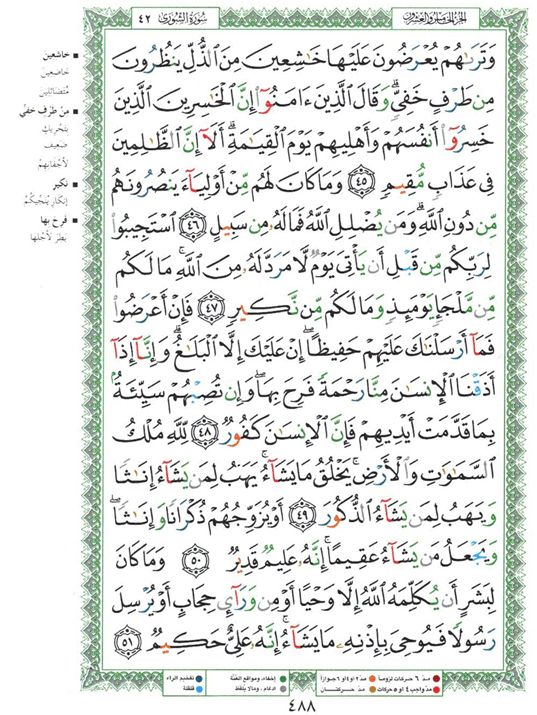 الجزء الخامس والعشرون
سورة الشورى ٤٢
وَتَرَىٰهُمْ يُعْرَضُونَ عَلَيْهَا خَٰشِعِينَ مِنَ ٱلذُّلِّ يَنظُرُونَ
مِن طَرْفٍ خَفِيٍّ ۗ وَقَالَ ٱلَّذِينَ ءَامَنُوٓا۟ إِنَّ ٱلْخَٰسِرِينَ ٱلَّذِينَ
خَسِرُوٓا۟ أَنفُسَهُمْ وَأَهْلِيهِمْ يَوْمَ ٱلْقِيَٰمَةِ ۗ أَلَآ إِنَّ ٱلظَّٰلِمِينَ
فِى عَذَابٍ مُّقِيمٍ ٤٥ وَمَا كَانَ لَهُم مِّنْ أَوْلِيَآءَ يَنصُرُونَهُم
مِّن دُونِ ٱللَّهِ ۗ وَمَن يُضْلِلِ ٱللَّهُ فَمَا لَهُۥ مِن سَبِيلٍ ٤٦ ٱسْتَجِيبُوا۟
لِرَبِّكُم مِّن قَبْلِ أَن يَأْتِىَ يَوْمٌ لَّا مَرَدَّ لَهُۥ مِنَ ٱللَّهِ ۚ مَا لَكُم
مِّن مَّلْجَإٍ يَوْمَئِذٍ وَمَا لَكُم مِّن نَّكِيرٍ ٤٧ فَإِنْ أَعْرَضُوا۟
فَمَآ أَرْسَلْنَٰكَ عَلَيْهِمْ حَفِيظًا ۖ إِنْ عَلَيْكَ إِلَّا ٱلْبَلَٰغُ ۗ وَإِنَّآ إِذَآ
أَذَقْنَا ٱلْإِنسَٰنَ مِنَّا رَحْمَةً فَرِحَ بِهَا ۖ وَإِن تُصِبْهُمْ سَيِّئَةٌۢ
بِمَا قَدَّمَتْ أَيْدِيهِمْ فَإِنَّ ٱلْإِنسَٰنَ كَفُورٌ ٤٨ لِّلَّهِ مُلْكُ
ٱلسَّمَٰوَٰتِ وَٱلْأَرْضِ ۚ يَخْلُقُ مَا يَشَآءُ ۚ يَهَبُ لِمَن يَشَآءُ إِنَٰثًا
وَيَهَبُ لِمَن يَشَآءُ ٱلذُّكُورَ ٤٩ أَوْ يُزَوِّجُهُمْ ذُكْرَانًا وَإِنَٰثًا ۖ
وَيَجْعَلُ مَن يَشَآءُ عَقِيمًا ۚ إِنَّهُۥ عَلِيمٌ قَدِيرٌ ٥٠ وَمَا كَانَ
لِبَشَرٍ أَن يُكَلِّمَهُ ٱللَّهُ إِلَّا وَحْيًا أَوْ مِن وَرَآئِ حِجَابٍ أَوْ يُرْسِلَ
رَسُولًا فَيُوحِىَ بِإِذْنِهِۦ مَا يَشَآءُ ۚ إِنَّهُۥ عَلِىٌّ حَكِيمٌ ٥١
خاشعين
خاضعين
متضائلين
من طرف خفي
بتحريك
ضعيف
لأجفانهم
نكير
إنكار يُنجيكم
فرح بها
بطر لأجلها
مد ٦ حركات لزوماً
مد ٢ أو ٤ أو ٦ جوازاً
إخفاء، ومواقع الغنة
تفخيم الراء
مد واجب ٤ أو ٥ حركات
مد حركتان
ادغام، ومالا يلفظ
قلقلة
٤٨٨